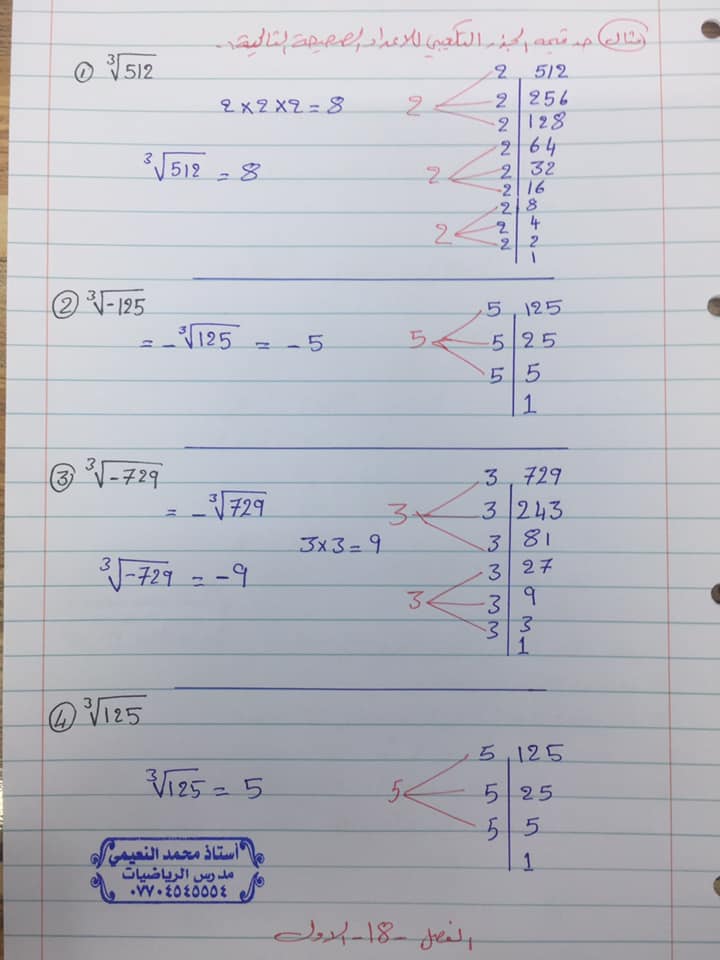 مثال جد قيمة الجذر التكعيبي للاعداد الصحيحة التالية:-
① ∛512
2 × 2 × 2 = 8
∛512 = 8
2 | 512
2 | 256
2 | 128
2 | 64
2 | 32
2 | 16
2 | 8
2 | 4
2 | 2
1
2
2
2
② ∛-125
= -∛125 = -5
5
5 | 125
5 | 25
5 | 5
1
③ ∛-729
= -∛729
3×3=9
∛-729 = -9
3
3
3 | 729
3 | 243
3 | 81
3 | 27
3 | 9
3 | 3
1
④ ∛125
∛125 = 5
5
5 | 125
5 | 25
5 | 5
1
أستاذ محمد النعيمي
مدرس الرياضيات
٠٧٧٠٤٥٤٥٥٥٤
الفصل -18- الاول